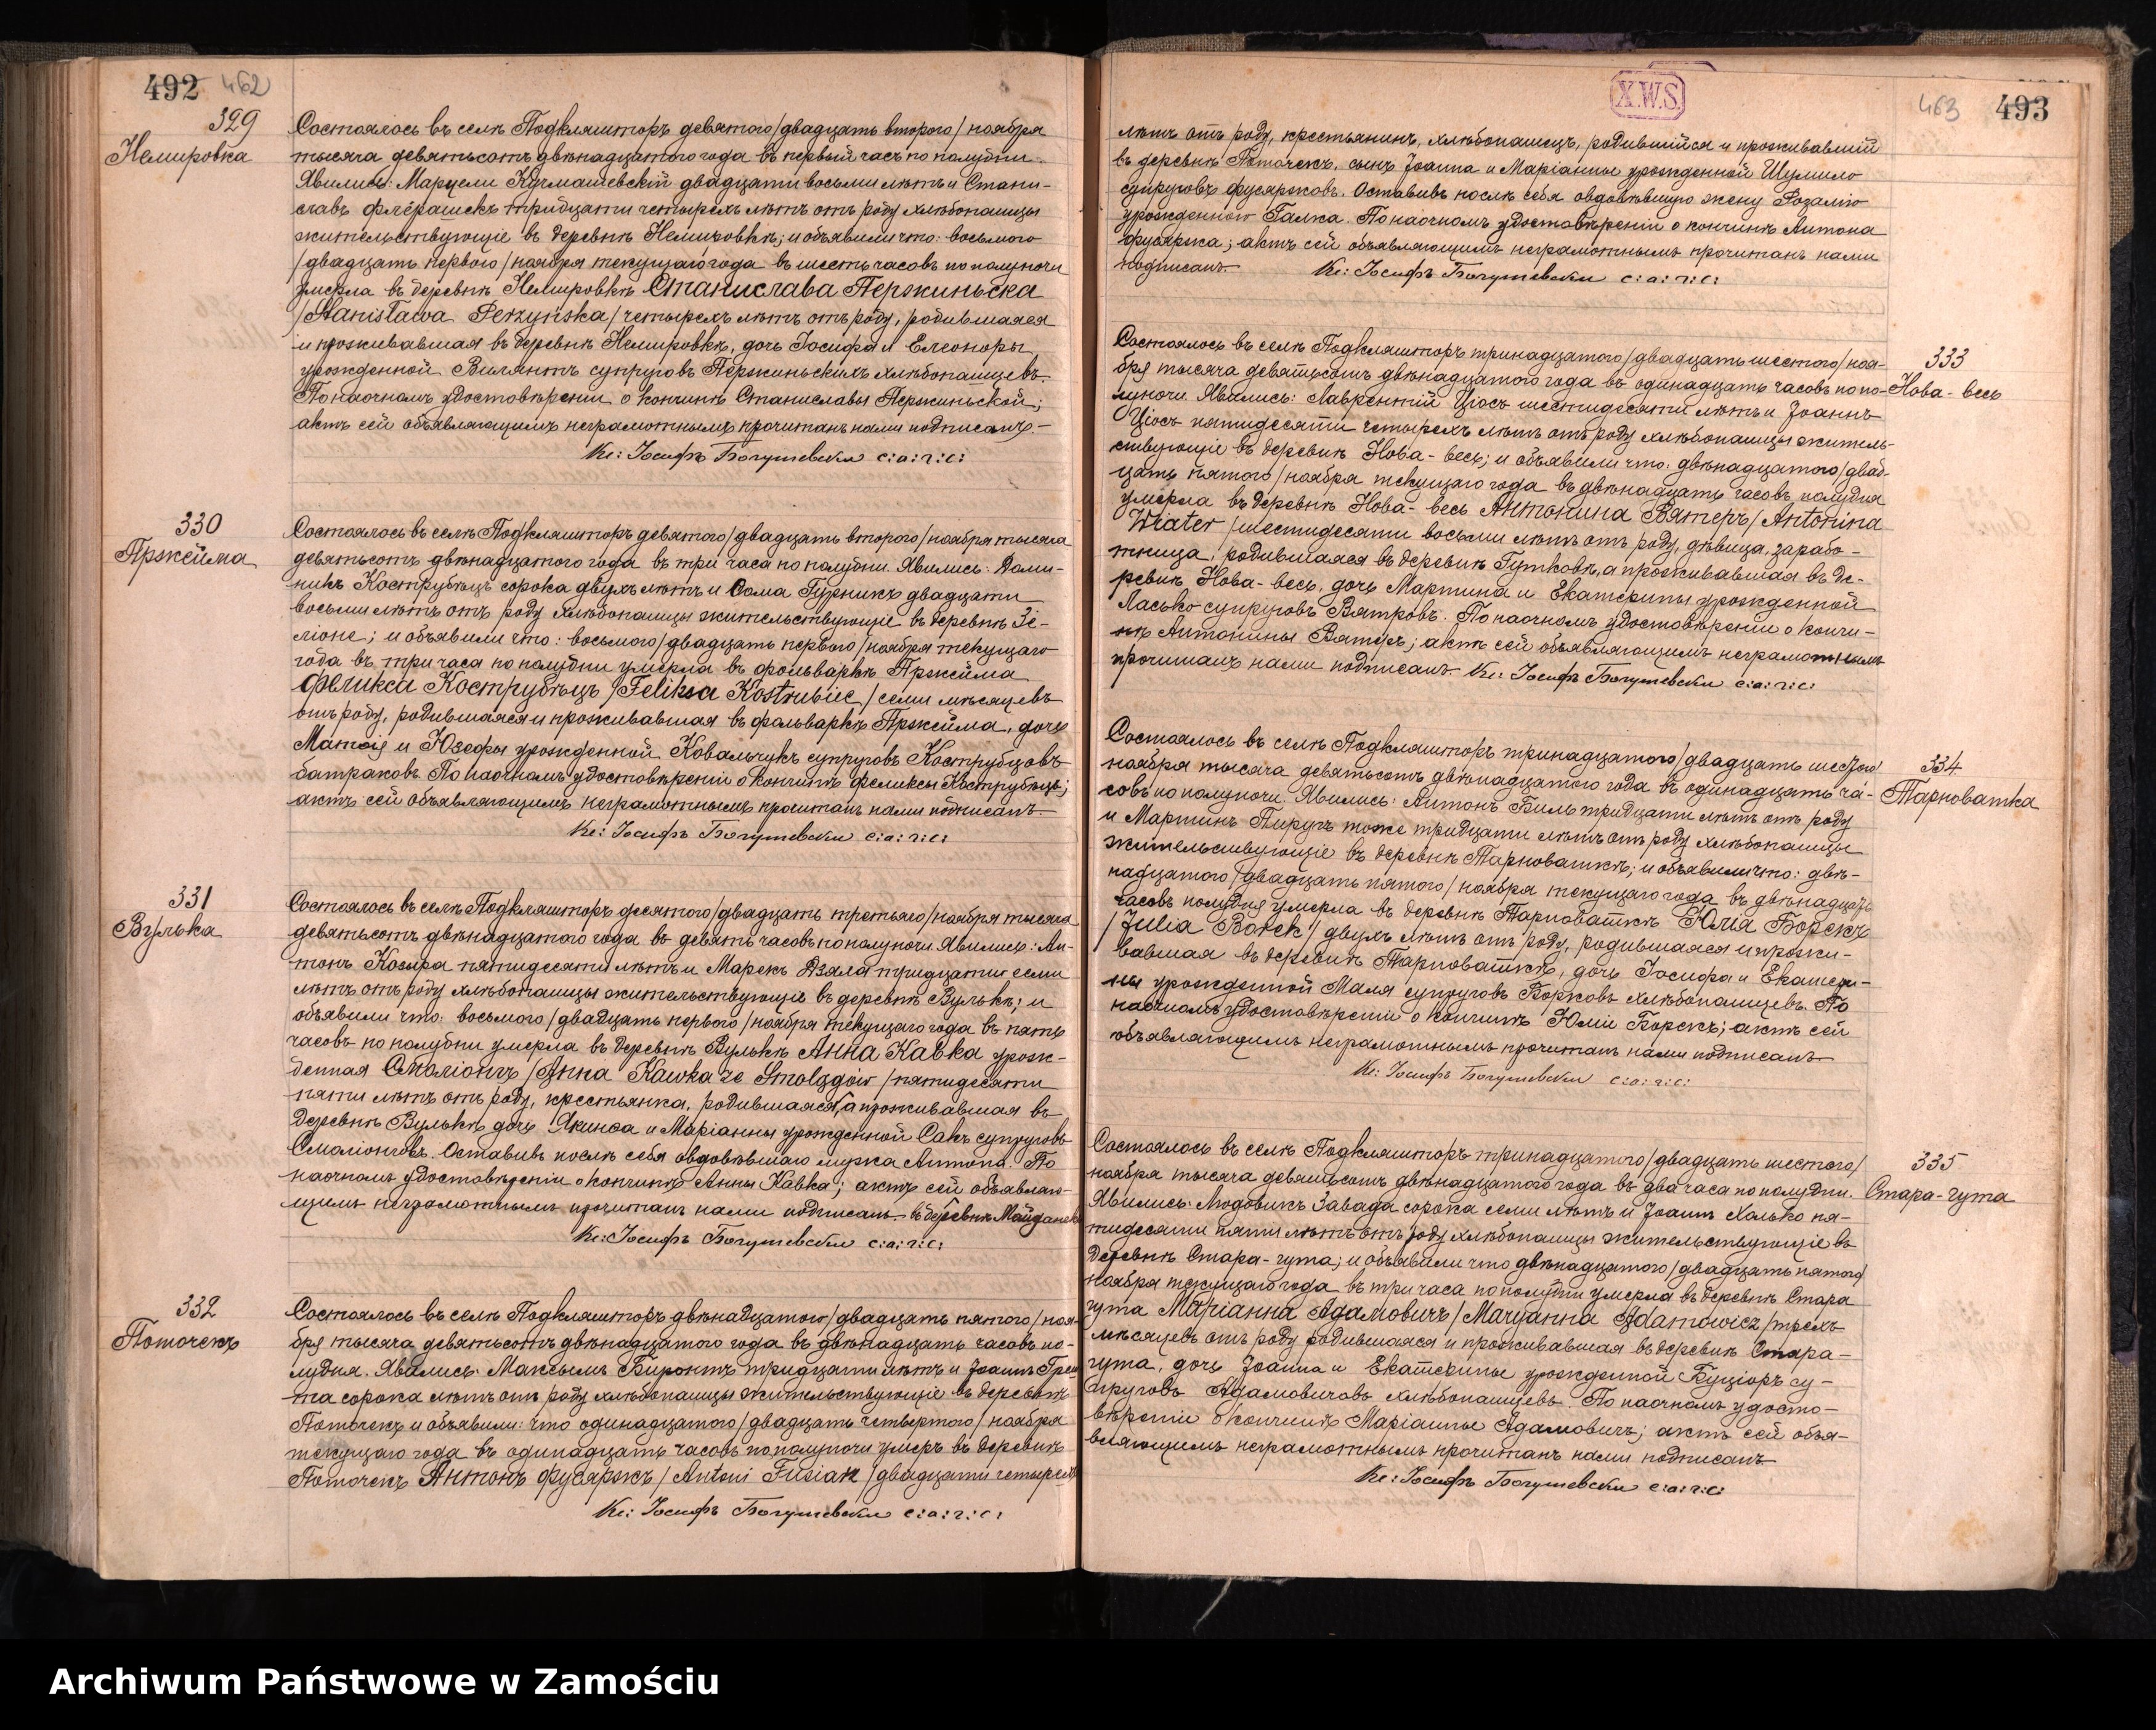 492 462
329
Немировка
Состоялось въ селѣ Подкляшторъ девятого /двадцать второго/ ноября
тысяча девятьсотъ двѣнадцатого года въ первый часъ по полудни.
Явились: Марцели Курмашевскій двадцати восьми лѣтъ и Стани-
славъ Флёрашекъ тридцати четырехъ лѣтъ отъ роду хлѣбопашцы
жительствующіе въ деревнѣ Немировкѣ; и объявили что: восьмого
/двадцать первого/ ноября текущаго года въ шесть часовъ по полуночи
умерла въ деревнѣ Немировкѣ Станислава Пержиньска
/Stanisława Perzyńska/ четырехъ лѣтъ отъ роду, родившаяся
и проживавшая въ деревнѣ Немировкѣ, дочь Іосифа и Елеоноры
урожденной Вилянтъ супруговъ Пержиньскихъ хлѣбопашцевъ.
По наочномъ удостовѣреніи о кончинѣ Станиславы Пержиньской;
актъ сей объявляющимъ неграмотнымъ прочитанъ нами подписанъ.
Кс: Іосифъ Богушевски с: а: г: с:
330
Пржейма
Состоялось въ селѣ Подкляшторъ девятого /двадцать второго/ ноября тысяча
девятьсотъ двѣнадцатого года въ три часа по полудни. Явились: Доми-
никъ Кострубѣцъ сорока двухъ лѣтъ и Сома Гурникъ двадцати
восьми лѣтъ отъ роду хлѣбопашцы жительствующіе въ деревнѣ Зе-
ліоне; и объявили что: восьмого /двадцать первого/ ноября текущаго
года въ три часа по полудни умерла въ фольваркѣ Пржейма
Феликса Кострубѣцъ /Feliksa Kostrubiec/ семи мѣсяцевъ
отъ роду, родившаяся и проживавшая въ фольваркѣ Пржейма, дочь
Матвія и Юзефы урожденной Ковальчукъ супруговъ Кострубцовъ
батраковъ. По наочномъ удостовѣреніи о кончинѣ Феликсы Кострубѣцъ;
актъ сей объявляющимъ неграмотнымъ прочитанъ нами подписанъ.
Кс: Іосифъ Богушевски с: а: г: с:
331
Вулька
Состоялось въ селѣ Подкляшторъ десятого /двадцать третьяго/ ноября тысяча
девятьсотъ двѣнадцатого года въ девять часовъ по полуночи. Явились: Ан-
тонъ Козыра пятидесяти лѣтъ и Марекъ Дзяла тридцати семи
лѣтъ отъ роду хлѣбопашцы жительствующіе въ деревнѣ Вулькѣ; и
объявили что: восьмого /двадцать первого/ ноября текущаго года въ пять
часовъ по полудни умерла въ деревнѣ Вулькѣ Анна Кавка урож-
денная Смоліонгъ /Anna Kawka ze Smolągów/ пятидесяти
пяти лѣтъ отъ роду, крестьянка, родившаяся, а проживавшая въ
деревнѣ Вулькѣ дочь Якинфа и Маріанны урожденной Сакъ супруговъ
Смоліонговъ. Оставивъ послѣ себя овдовѣвшаго мужа Антона. По
наочномъ удостовѣреніи о кончинѣ Анны Кавка; актъ сей объявляю-
щимъ неграмотнымъ прочитанъ нами подписанъ. въ деревнѣ Майданекъ
Кс: Іосифъ Богушевски с: а: г: с:
332
Поточекъ
Состоялось въ селѣ Подкляшторъ двѣнадцатого /двадцать пятого/ ноя-
бря тысяча девятьсотъ двѣнадцатого года въ двѣнадцать часовъ по-
лудня. Явились: Максымъ Биронтъ тридцати лѣтъ и Іоаннъ
та сорока лѣтъ отъ роду хлѣбопашцы жительствующіе въ деревнѣ
Поточекъ и объявили: что одинадцатого /двадцать четвертого/ ноября
текущаго года въ одинадцать часовъ по полуночи умеръ въ деревнѣ
Поточекъ Антонъ Фусяржъ /Antoni Fusiarz/ двадцати четырехъ
Кс: Іосифъ Богушевски с: а: г: с:
X.W.S.
463 493
лѣтъ отъ роду, крестьянинъ, хлѣбопашецъ, родившійся и проживавшій
въ деревнѣ Поточекъ, сынъ Іоанна и Маріанны урожденной Шумило
супруговъ Фусяржовъ. Оставивъ послѣ себя овдовѣвшую жену Розалію
урожденною Галка. По наочномъ удостовѣреніи о кончинѣ Антона
Фусяржа; актъ сей объявляющимъ неграмотнымъ прочитанъ нами
подписанъ. Кс: Іосифъ Богушевски с: а: г: с:
333
Нова-весь
Состоялось въ селѣ Подкляшторъ тринадцатого /двадцать шестого/ ноя-
бря тысяча девятьсотъ двѣнадцатого года въ одинадцать часовъ по по-
луночи. Явились: Лаврентій Ціосъ шестидесяти лѣтъ и Іоаннъ
Ціосъ пятидесяти четырехъ лѣтъ отъ роду хлѣбопашцы житель-
ствующіе въ деревнѣ Нова-весь; и объявили что: двѣнадцатого /двад-
цать пятого/ ноября текущаго года въ двѣнадцать часовъ полудня
умерла въ деревнѣ Нова-весь Антонина Вятеръ /Antonina
Wiater/ шестидесяти восьми лѣтъ отъ роду, дѣвица, зарабо-
тница, родившаяся въ деревнѣ Гутковѣ, а проживавшая въ де-
ревнѣ Нова-весь, дочь Мартина и Екатерины урожденной
Ласько супруговъ Вятровъ. По наочномъ удостовѣреніи о кончи-
нѣ Антонины Вятеръ; актъ сей объявляющимъ неграмотнымъ
прочитанъ нами подписанъ. Кс: Іосифъ Богушевски с: а: г: с:
334
Тарноватка
Состоялось въ селѣ Подкляшторъ тринадцатого /двадцать шестого/
ноября тысяча девятьсотъ двѣнадцатого года въ одинадцать ча-
совъ по полуночи. Явились: Антонъ Биль тридцати лѣтъ отъ роду
и Мартинъ Пиругъ тоже тридцати лѣтъ отъ роду хлѣбопашцы
жительствующіе въ деревнѣ Тарноваткѣ; и объявили что: двѣ-
надцатого /двадцать пятого/ ноября текущаго года въ двѣнадцать
часовъ полудня умерла въ деревнѣ Тарноваткѣ Юлія Борекъ
/Julia Borek/ двухъ лѣтъ отъ роду, родившаяся и прожи-
вавшая въ деревнѣ Тарноваткѣ, дочь Іосифа и Екатери-
ны урожденной Маля супруговъ Борковъ хлѣбопашцевъ. По
наочномъ удостовѣреніи о кончинѣ Юліи Борекъ; актъ сей
объявляющимъ неграмотнымъ прочитанъ нами подписанъ.
Кс: Іосифъ Богушевски с: а: г: с:
335
Стара-гута
Состоялось въ селѣ Подкляшторъ тринадцатого /двадцать шестого/
ноября тысяча девятьсотъ двѣнадцатого года въ два часа по полудни.
Явились: Людовикъ Завада сорока семи лѣтъ и Іоаннъ Халько пя-
тидесяти пяти лѣтъ отъ роду хлѣбопашцы жительствующіе въ
деревнѣ Стара-гута; и объявили что двѣнадцатого /двадцать пятого/
ноября текущаго года въ три часа по полудни умерла въ деревнѣ Стара
гута Маріанна Адамовичъ /Maryanna Adamowicz/ трехъ
мѣсяцевъ отъ роду родившаяся и проживавшая въ деревнѣ Стара-
гута, дочь Іоанна и Екатерины урожденной Буціоръ су-
пруговъ Адамовичовъ хлѣбопашцевъ. По наочномъ удосто-
вѣреніи о кончинѣ Маріанны Адамовичъ; актъ сей объя-
вляющимъ неграмотнымъ прочитанъ нами подписанъ.
Кс: Іосифъ Богушевски с: а: г: с:
Archiwum Państwowe w Zamościu